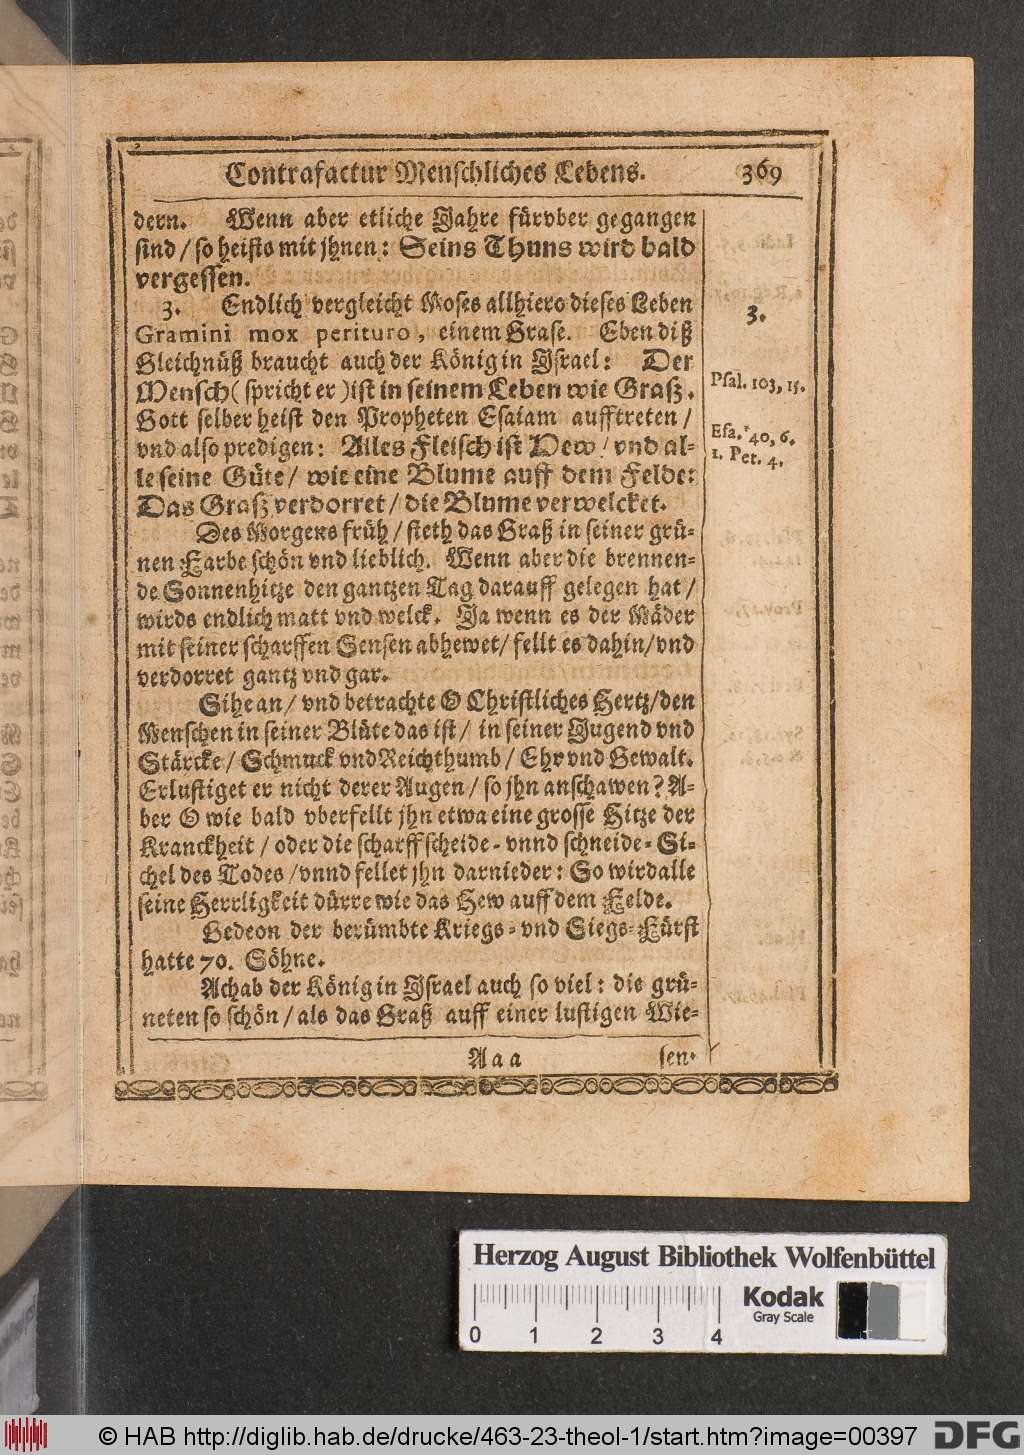 Contrafactur Menschliches Lebens. 369
dern. Wenn aber etliche Jahre fürvber gegangen
sind / so heists mit jhnen: Seins Thuns wird bald
vergessen.
3. Endlich vergleicht Moses allhiero dieses Leben
Gramini mox perituro, einem Grase. Eben diß
Gleichnüß braucht auch der König in Israel: Der
Mensch ( spricht er ) ist in seinem Leben wie Graß.
Gott selber heist den Propheten Esaiam aufftreten /
vnd also predigen: Alles Fleisch ist Hew / vnd al-
le seine Güte / wie eine Blume auff dem Felde:
Das Graß verdorret / die Blume verwelcket.
Des Morgens früh / steth das Graß in seiner grü-
nen Farbe schön vnd lieblich. Wenn aber die brennen-
de Sonnenhitze den gantzen Tag darauff gelegen hat /
wirds endlich matt vnd welck. Ja wenn es der Mäder
mit seiner scharffen Sensen abhewet / fellt es dahin / vnd
verdorret gantz vnd gar.
Sihe an / vnd betrachte O Christliches Hertz / den
Menschen in seiner Blüte das ist / in seiner Jugend vnd
Stärcke / Schmuck vnd Reichthumb / Ehr vnd Gewalt.
Erlustiget er nicht derer Augen / so jhn anschawen? A-
ber O wie bald vberfellt jhn etwa eine grosse Hitze der
Kranckheit / oder die scharff scheide- vnnd schneide- Si-
chel des Todes / vnnd fellet jhn darnieder: So wird alle
seine Herrligkeit dürre wie das Hew auff dem Felde.
Gedeon der berümbte Kriegs- vnd Siegs-Fürst
hatte 70. Söhne.
Achab der König in Israel auch so viel: die grü-
neten so schön / als das Graß auff einer lustigen Wie-
Aaa sen.
3.
Psal. 103, 15.
Esa. 40, 6.
1. Pet. 4.
Herzog August Bibliothek Wolfenbüttel
0 1 2 3 4
Kodak
Gray Scale
© HAB http://diglib.hab.de/drucke/463-23-theol-1/start.htm?image=00397
DFG